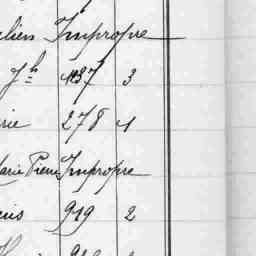 lien Impropre
Jh 1137 3
rie 278 4
Marie Pierre Impropre
uis 919 2